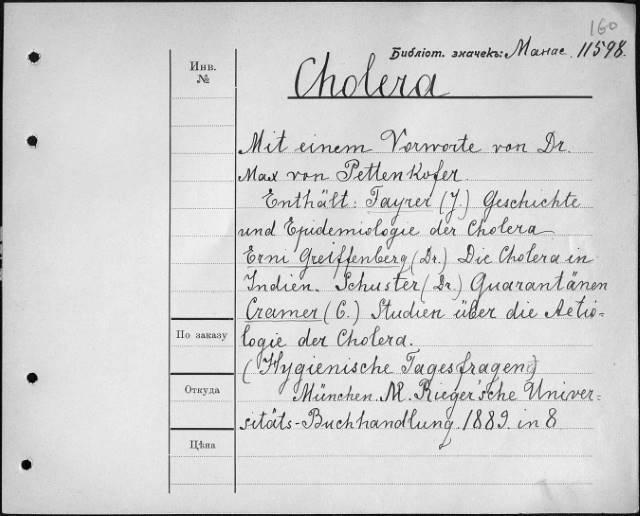 160
Библiот. значекъ: Манас. 11598.
Инв.
№
Cholera
Mit einem Vorworte von Dr.
Max von Pettenkofer.
Enthält: Fayrer (J.) Geschichte
und Epidemiologie der Cholera
Erni Greiffenberg (Dr.) Die Cholera in
Indien. Schuster (Dr.) Quarantänen
Cramer (C.) Studien über die Aetio-
По заказу
logie der Cholera.
(Hygienische Tagesfragen)
Откуда
München. M. Rieger'sche Univer-
sitäts-Buchhandlung. 1889. in 8.
Цѣна